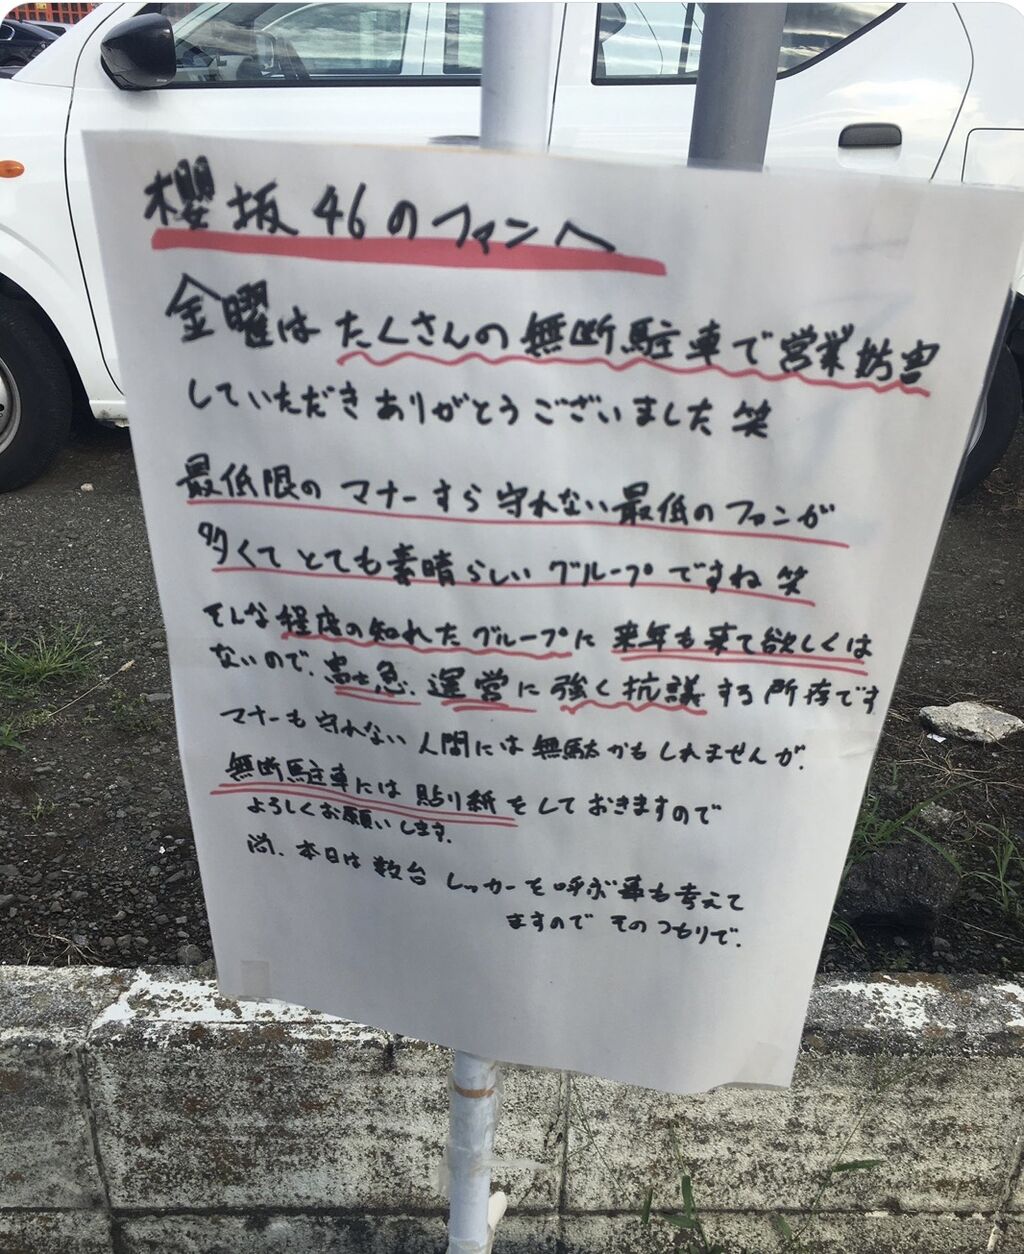 櫻坂46のファンへ
金曜はたくさんの無断駐車で営業妨害
していただきありがとうございました笑
最低限のマナーすら守れない最低のファンが
多くてとても素晴らしいグループですね笑
そんな程度の知れたグループに来年も来て欲しくは
ないので、富士急、運営に強く抗議する所存です
マナーも守れない人間には無駄かもしれませんが、
無断駐車には貼り紙をしておきますので
よろしくお願いします。
尚、本日は数台レッカーを呼ぶ事も考えて
ますのでそのつもりで。